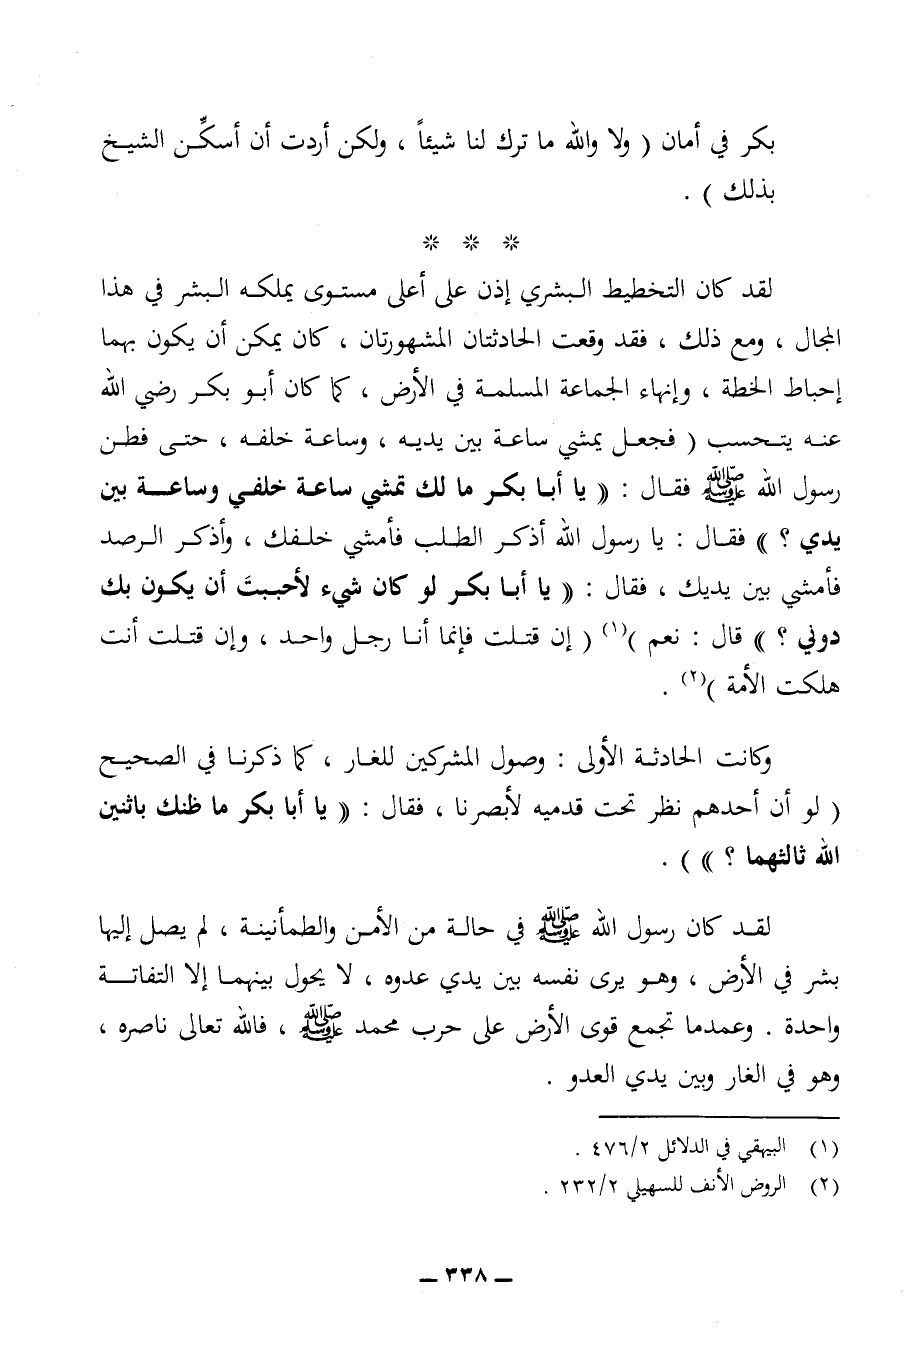 بكر في أمان ( ولا والله ما ترك لنا شيئاً ، ولكن أردت أن أسكِّن الشيخ
بذلك ) .
* * *
لقد كان التخطيط البشري إذن على أعلى مستوى يملكه البشر في هذا
المجال ، ومع ذلك ، فقد وقعت الحادثتان المشهورتان ، كان يمكن أن يكون بهما
إحباط الخطة ، وإنهاء الجماعة المسلمة في الأرض ، كما كان أبو بكر رضي الله
عنه يتحسب ( فجعل يمشي ساعة بين يديه ، وساعة خلفه ، حتى فطن
رسول الله ﷺ فقال : (( يا أبا بكر ما لك تمشي ساعة خلفي وساعة بين
يدي ؟ )) فقال : يا رسول الله أذكر الطلب فأمشي خلفك ، وأذكر الرصد
فأمشي بين يديك ، فقال : (( يا أبا بكر لو كان شيء لأحببتَ أن يكون بك
دوني ؟ )) قال : نعم )(١) ( إن قتلت فإنما أنا رجل واحد ، وإن قتلت أنت
هلكت الأمة )(٢) .
وكانت الحادثة الأولى : وصول المشركين للغار ، كما ذكرنا في الصحيح
( لو أن أحدهم نظر تحت قدميه لأبصرنا ، فقال : (( يا أبا بكر ما ظنك باثنين
الله ثالثهما ؟ )) ) .
لقد كان رسول الله ﷺ في حالة من الأمن والطمأنينة ، لم يصل إليها
بشر في الأرض ، وهو يرى نفسه بين يدي عدوه ، لا يحول بينهما إلا التفاتة
واحدة . وعمدما تجمع قوى الأرض على حرب محمد ﷺ ، فالله تعالى ناصره ،
وهو في الغار وبين يدي العدو .
(١) البيهقي في الدلائل ٤٧٦/٢ .
(٢) الروض الأنف للسهيلي ٢٣٢/٢ .
— ٣٣٨ —